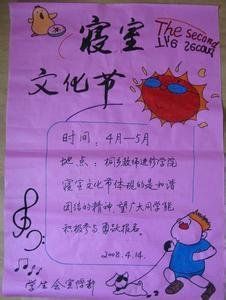 寝室
The second
文化节
时间：4月—5月
地点：桐乡教师进修学院
寝室文化节体现的是和谐
团结的精神，望广大同学能
积极参与勇跃报名。
2008.4.14.
学生会宣传部